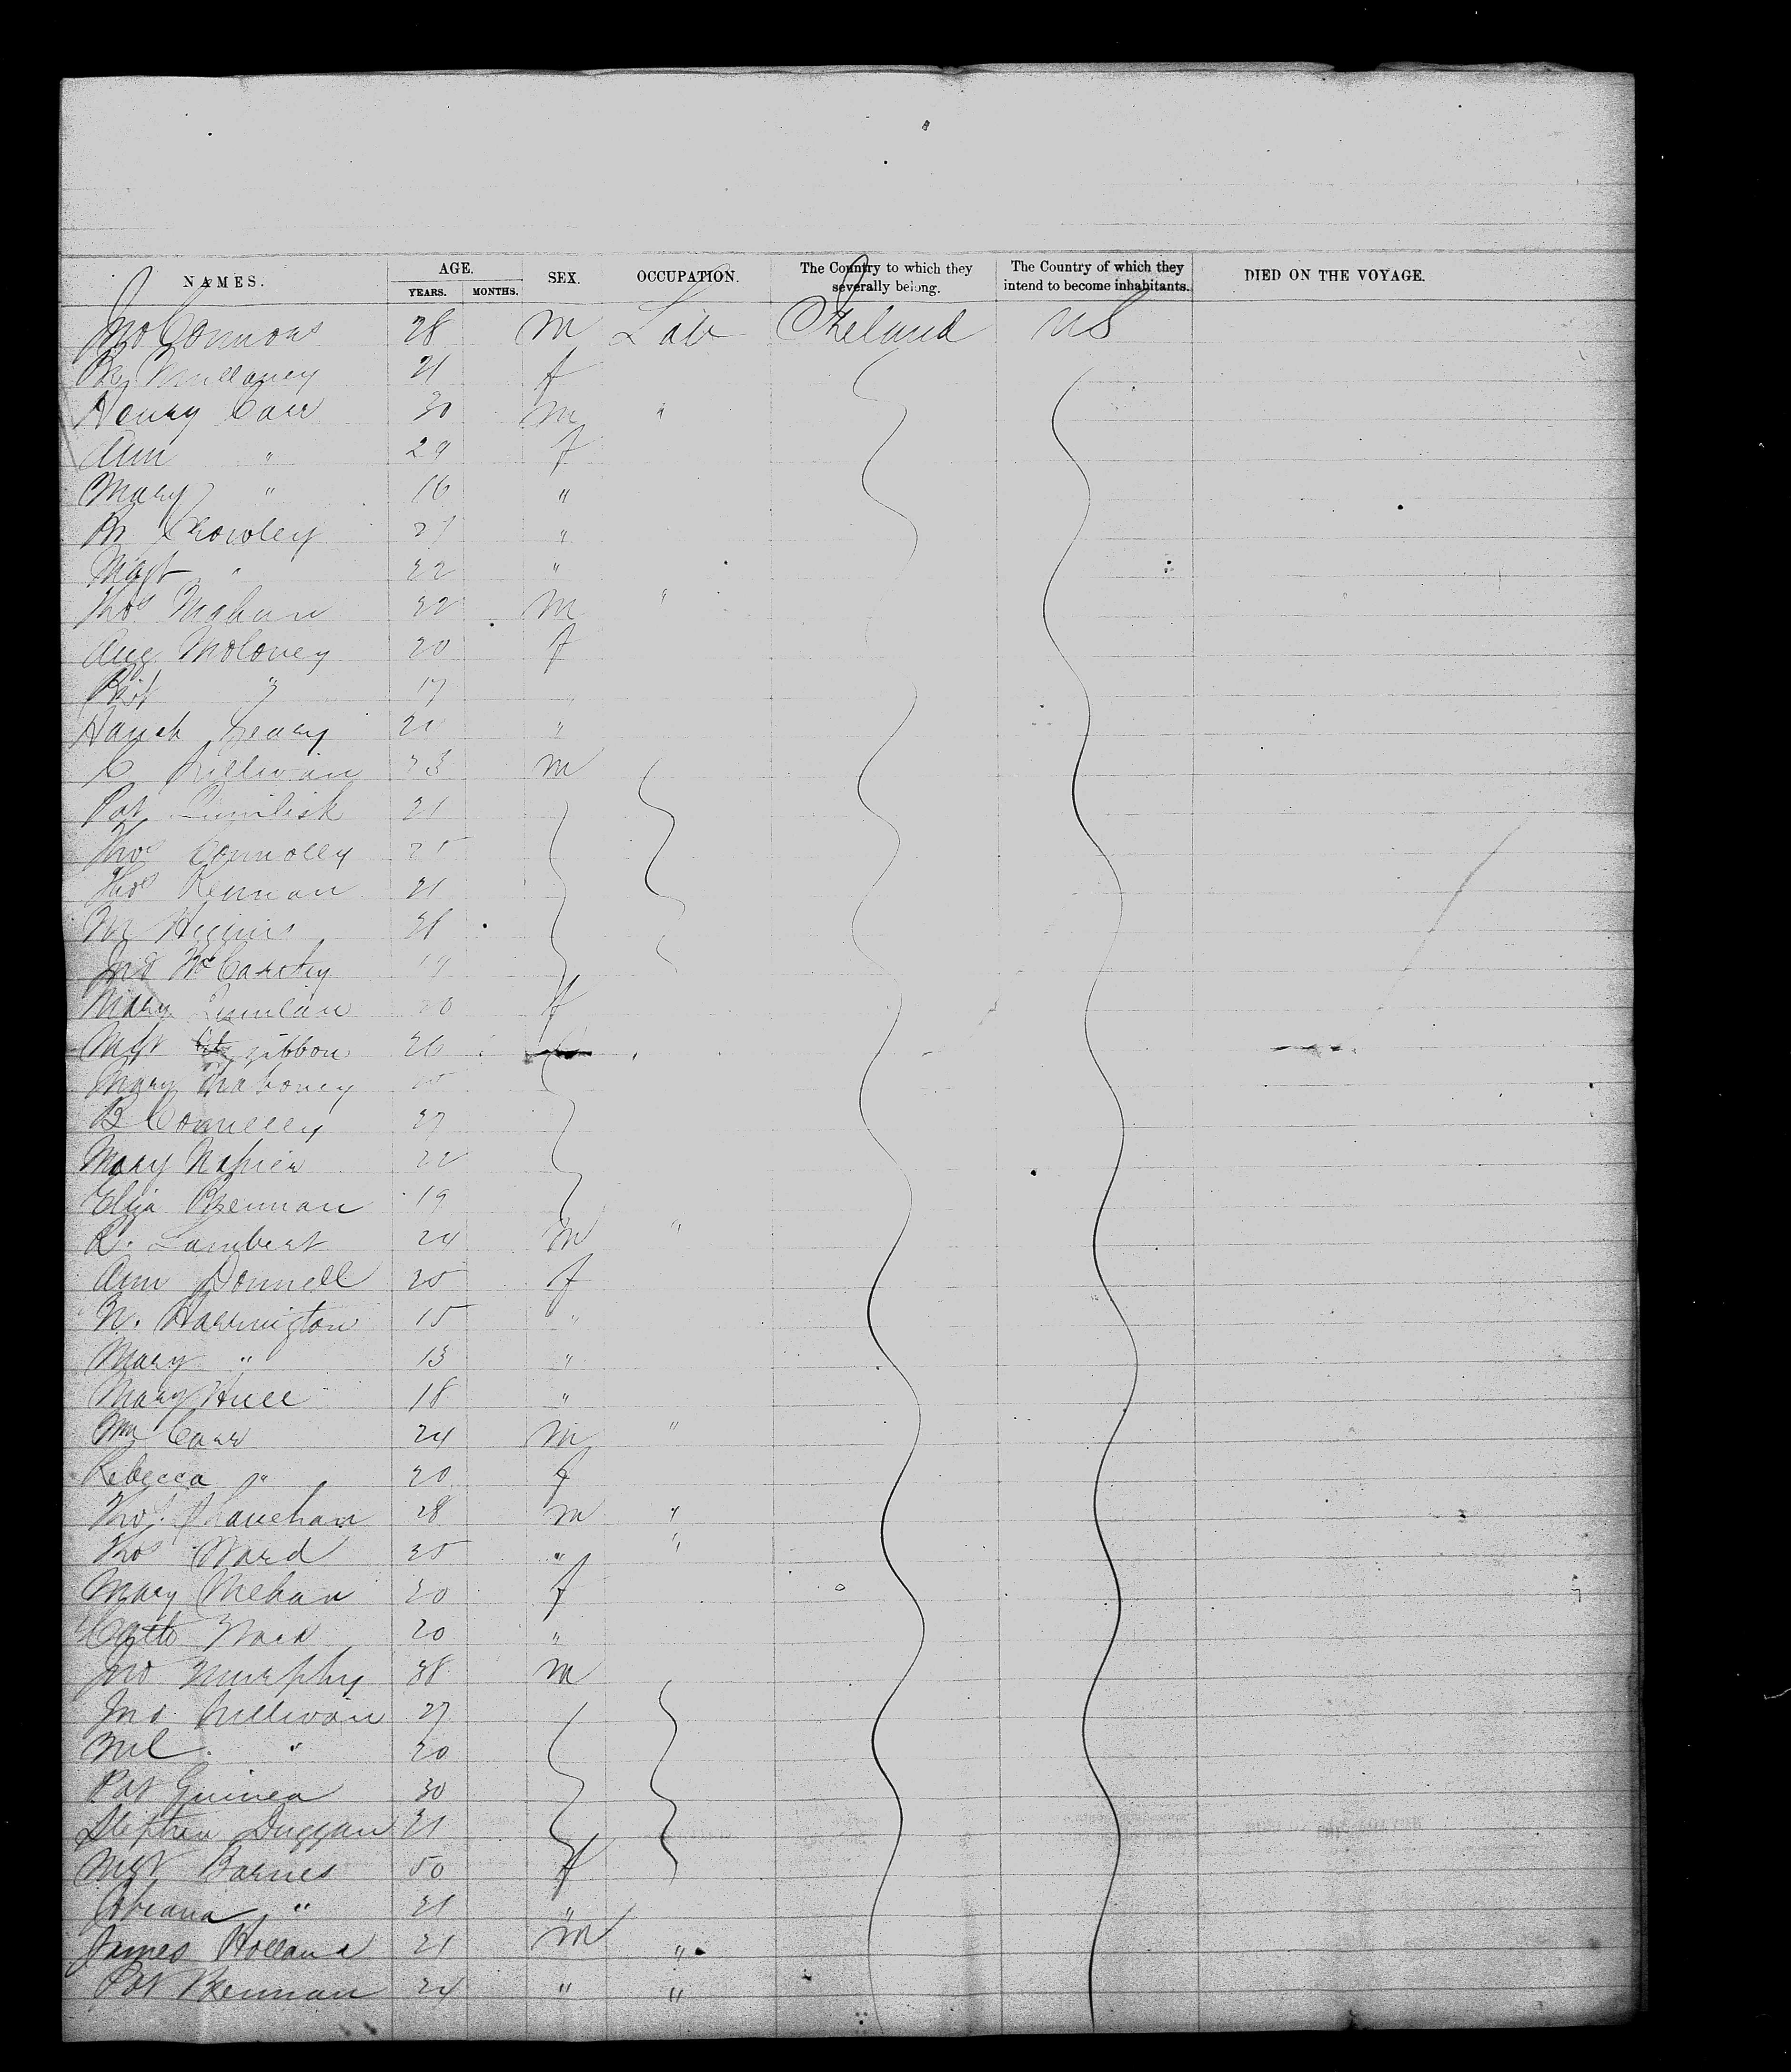 NAMES. AGE. SEX. OCCUPATION. The Country to which they severally belong. The Country of which they intend to become inhabitants. DIED ON THE VOYAGE.
YEARS. MONTHS.
Jno Connors 28 m Lab Ireland US
Mullaney 21 f
Henry Carr 30 m "
Ann " 29 f
Mary " 16 "
Crowley "
Magt " 22 "
Thos Mahun 22 m "
Moloney 20 f
" 17
Leary "
C Sullivan 23 m
Pat 21
Thos Connolly 25
Thos 21
Higgins
Jno McCarthy 19
Mary Quinlan 20 f
Mgt Fitzgibbon 26
Mary Mahoney
B Connelly 27
Mary Napier 22
Eliza Brennan 19
R. Lambert 24 m "
Ann Donnell 25 f
N. Harrington 15 "
Mary " 13 "
Mary 18 "
Wm Carr 24 m "
Rebecca " 20 f
Thos Shanehan 28 m "
Thos Ward 25 " "
Mary Mehan 20 f
Cath Ward 20 "
Jno Murphy 38 m
Jno Sullivan 27
Ml " 20
Pat Guinea 30
Stephen Duggan 21
Mgt Barnes 50 f
" 21 "
James Holland 21 m "
Pat Brennan 24 " "